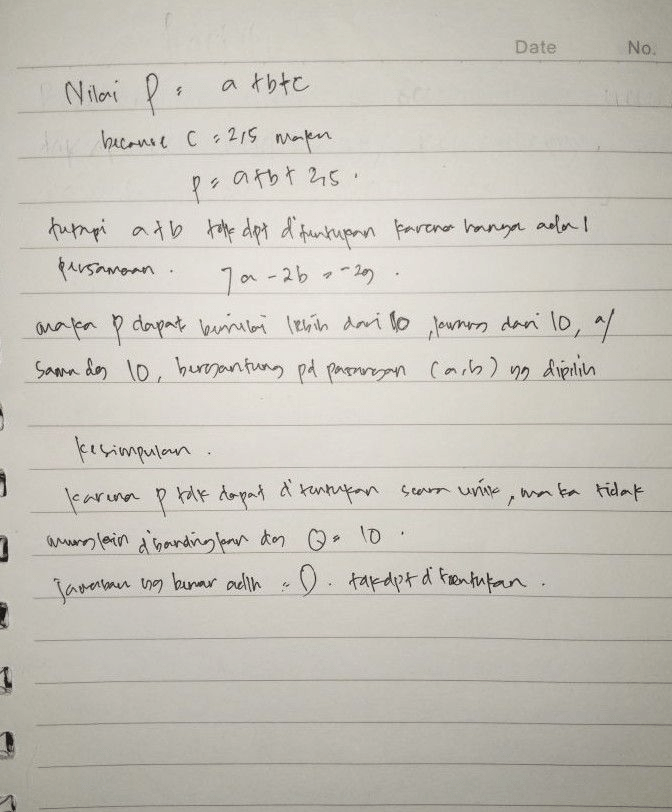 Date No.
Nilai P = a+b+c
because c = 2,5 maka
p = a+b+ 2,5.
tetapi a+b tdk dpt ditentukan karena hanya ada 1
persamaan. 7a - 2b = -29.
maka p dapat bernilai lebih dari 10, kurang dari 10, a/
sama dg 10, bergantung pd pasangan (a,b) yg dipilih
kesimpulan.
karena p tdk dapat ditentukan secara unik, maka tidak
mungkin dibandingkan dg Q = 10.
Jawaban yg benar adlh = D. tak dpt ditentukan.